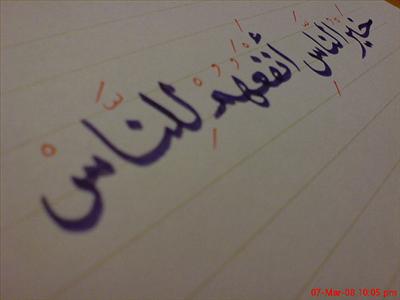 خَيْرُ النَّاسِ أَنْفَعُهُمْ لِلنَّاسْ
07-Mar-08 10:05 pm